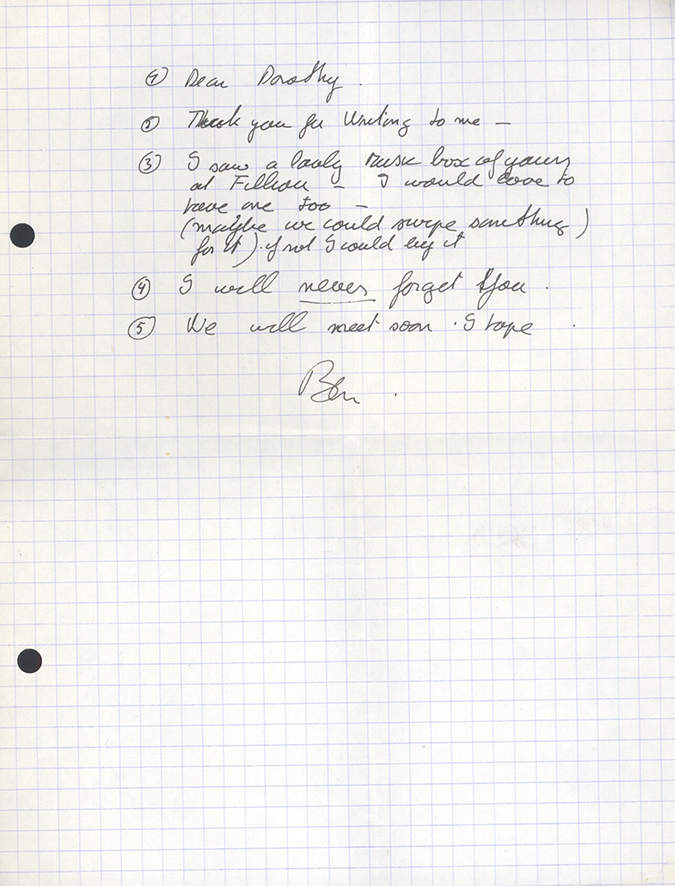 ① Dear Dorothy.
② Thank you for Writing to me –
③ I saw a lovely music box of yours
at Filliou – I would love to
have one too –
(maybe we could swape something)
for it). if not I could buy it
④ I will never forget You.
⑤ We will meet soon. I hope.
Ben.